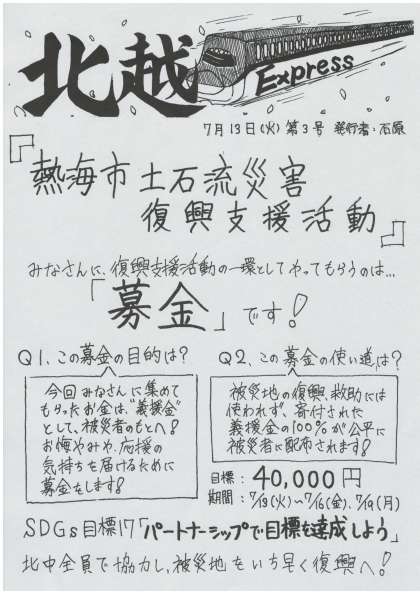 北越 Express
7月13日(火) 第3号 発行者:石原
『熱海市土石流災害
復興支援活動』
みなさんに、復興支援活動の一環としてやってもらうのは…
「募金」です!
Q1、この募金の目的は?
今回みなさんに集めて
もらったお金は、"義援金"
として、被災者のもとへ!
お悔やみや、応援の
気持ちを届けるために
募金をします!
Q2、この募金の使い道は?
被災地の復興、救助には
使われず、寄付された
義援金の100%が公平に
被災者に配布されます!
目標: 40,000円
期間: 7/13(火)~7/16(金)、7/19(月)
SDGs目標17「パートナーシップで目標を達成しよう」
北中全員で協力し、被災地をいち早く復興へ!